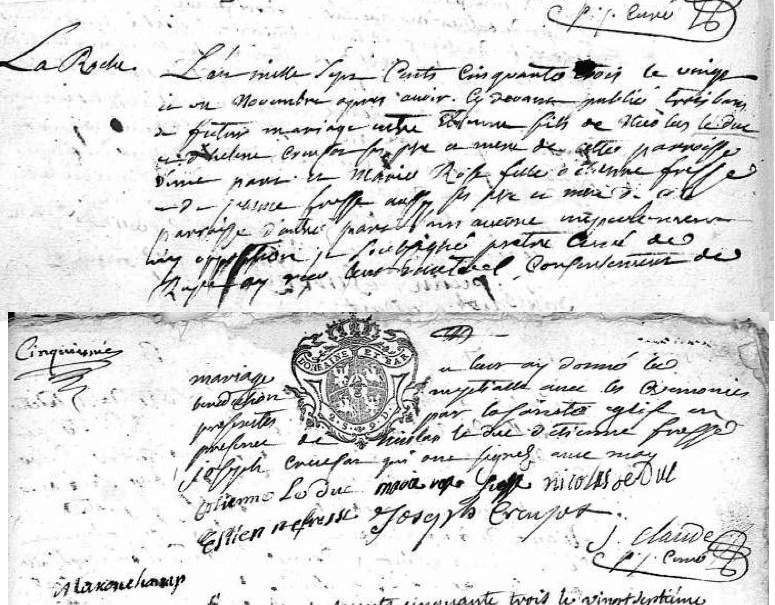 p. j. Curé
La Roche.
L'an mille Sept Cents Cinquante trois le vingt
de Novembre apres avoir Cy devant publié trois bans
de futur mariage entre Etienne fils de Nicolas le duc
et d'helene Creusot ses pere et mere de cette parroisse
d'une part et Marie Rose fille d'etienne fresse
et de jeanne fresse aussy ses pere et mere de cette
parroisse d'autre part sans aucune
ny opposition je soubsigné pretre Curé de
ay reçu leur mutuel Consentement de
Cinquiesme
LORRAINE ET BAR
mariage et leur ay donné la
benediction nuptialle avec les Ceremonies
prescrites par la sainte eglise en
presence de Nicolas le duc d'etienne fresse
joseph Creusot qui ont signez avec moy
etienne Le duc marie rose fresse nicolas le Duc
Estienne fresse Joseph Creusot.
J. Claude
p. j. Curé
A laronchamp
cents cinquante trois le vingt septieme